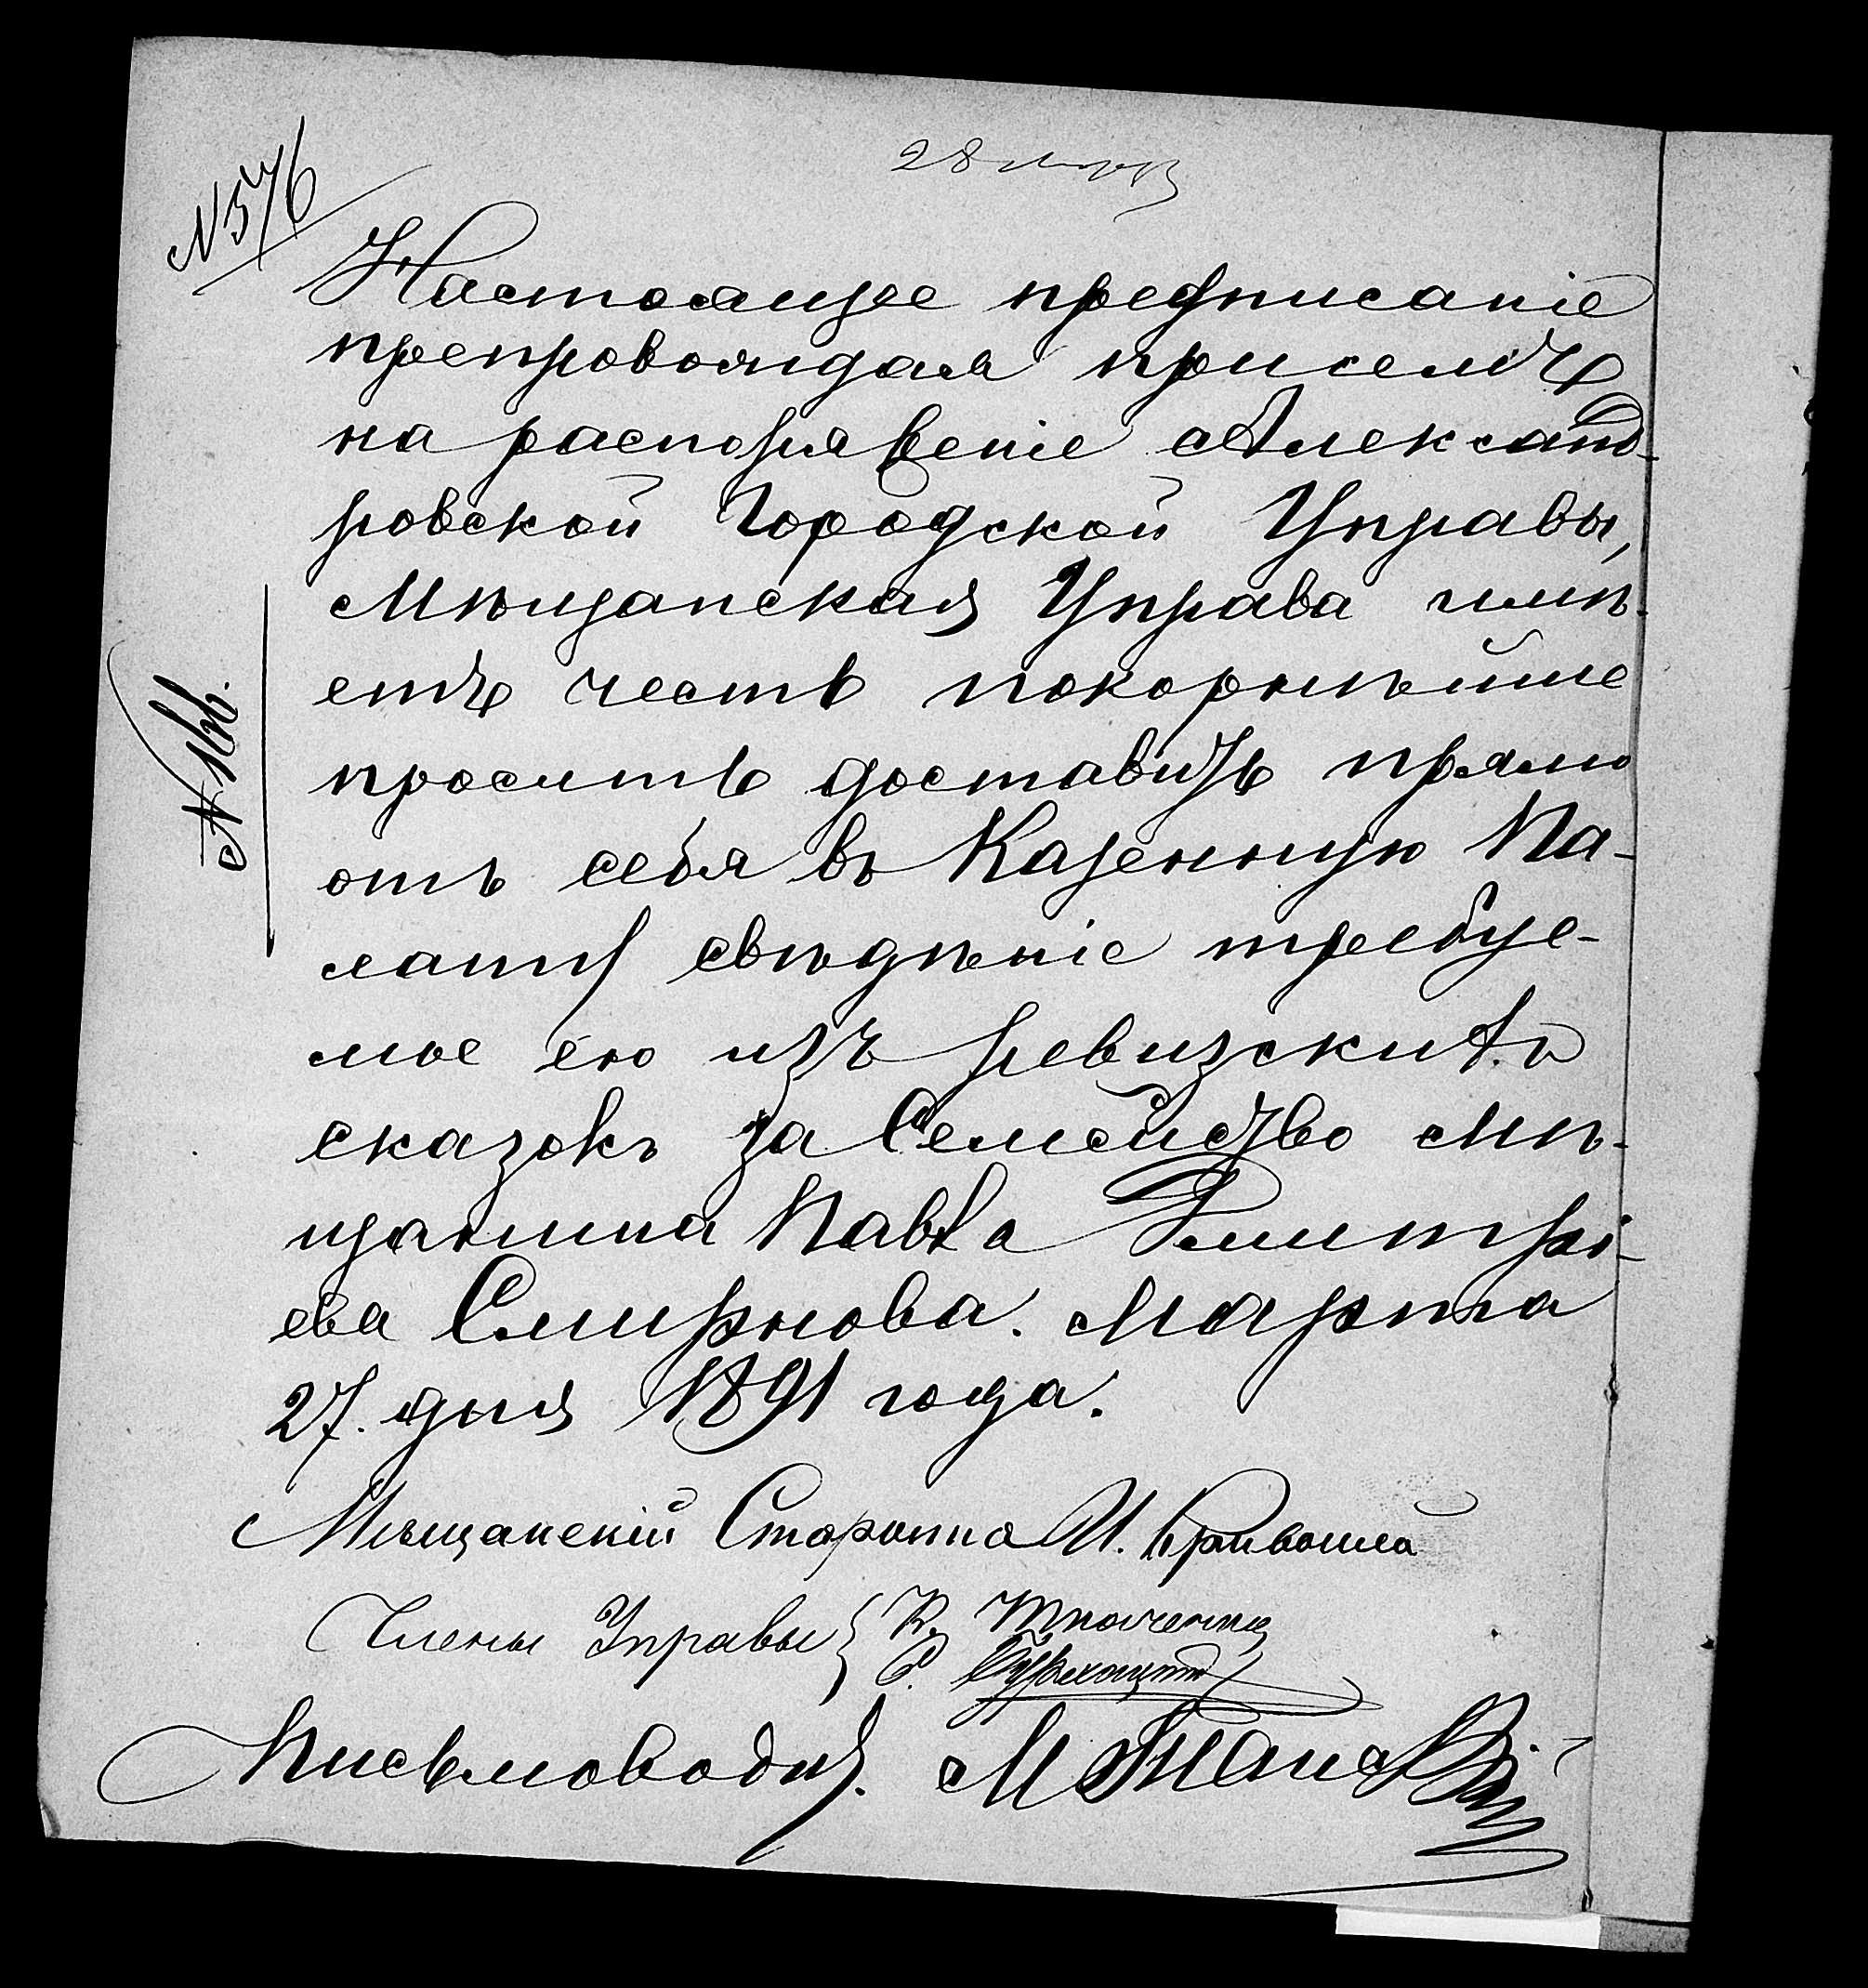 28 мар
№ 576
Настоящее предписаніе
препровождая при семъ
на распоряженіе Александ-
ровской Городской Управы,
Мѣщанская Управа имѣ-
етъ честь покорнѣйше
просить доставить прямо
отъ себя въ Казенную Па-
лату свѣдѣніе требуе-
мое ею изъ ревизскихъ
сказокъ за Семейство Мѣ-
щанина Павла Дмитрі-
ева Смирнова. Марта
27. дня 1891 года.
№ 166.
Мѣщанскій Староста И. Кривошея
Члены Управы К. Ткаченко
Письмоводит. М